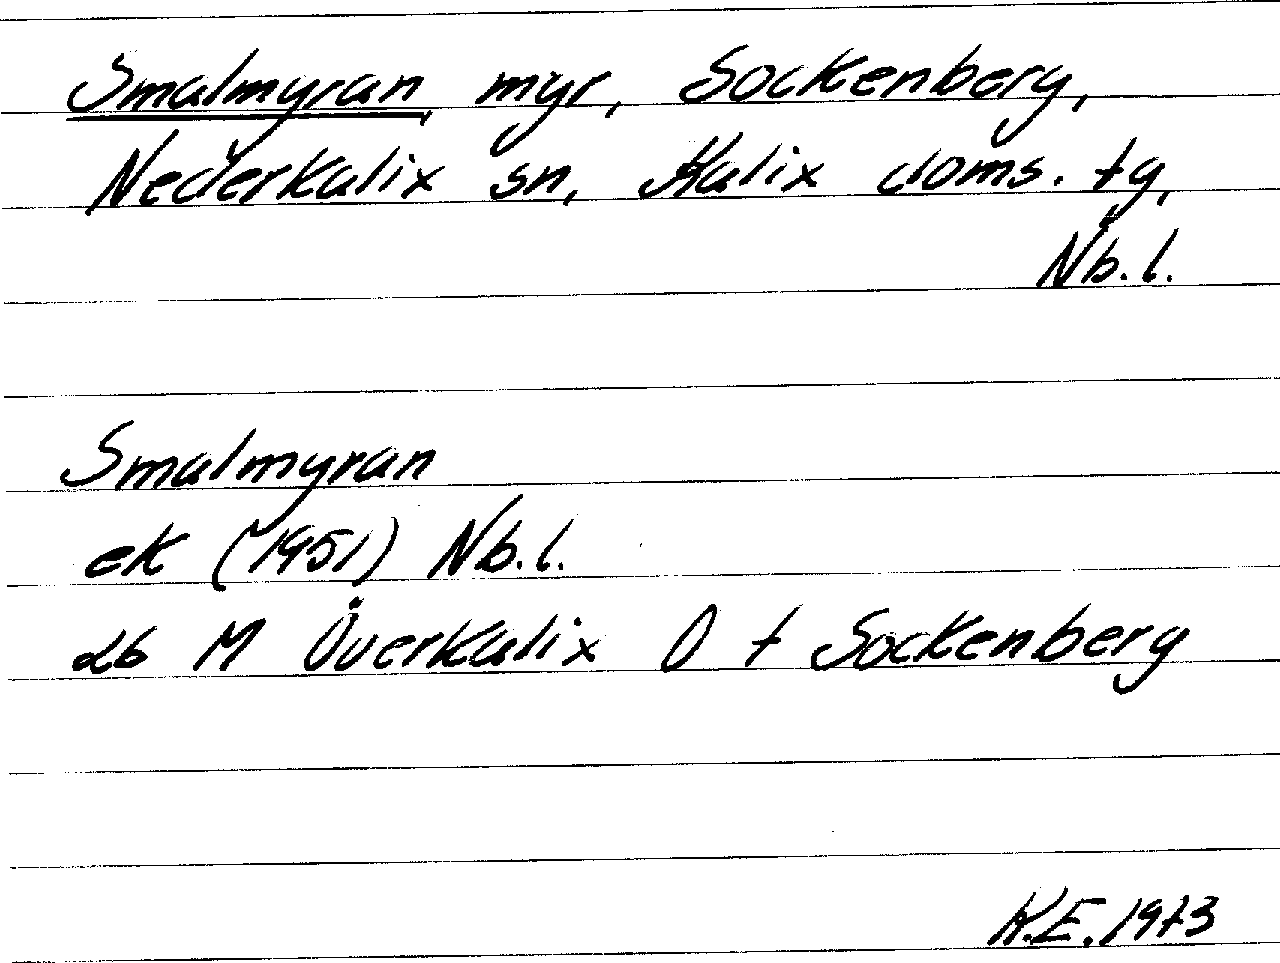 Smalmyran, myr, Sockenberg,
Nederkalix sn, Kalix doms. tg,
Nb.l.
Smalmyran
ek (1951) Nb.l.
26 M Överkalix O t Sockenberg
K.E. 1973